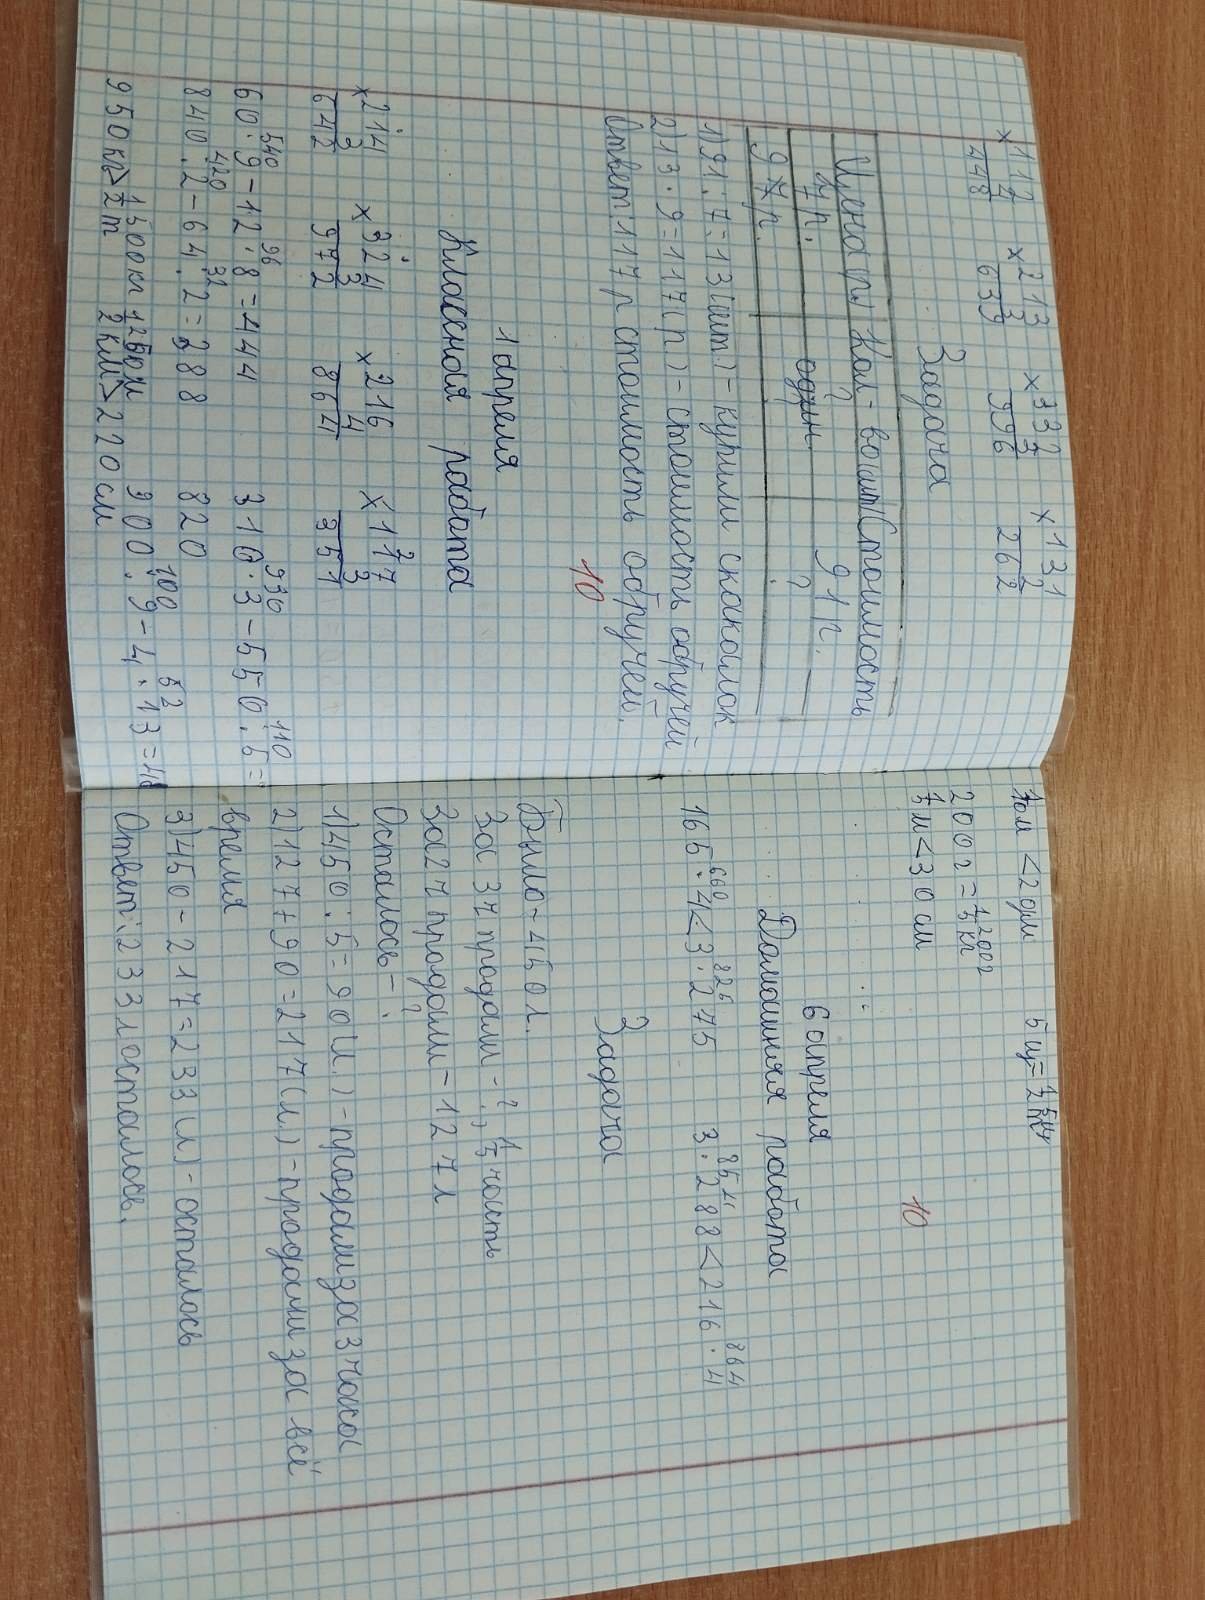 ×112 ×213 ×332 ×131
4 3 3 2
448 639 996 262
Задача
Цена(р) Кол-во(шт) Стоимость
7 р. ? 91 р.
9 р. один. ?
1) 91:7=13(шт)-купили скакалок
2) 13·9=117(р)-стоимость обручей
Ответ: 117 р стоимость обручей.
10
1 апреля
Классная работа
×214 ×324 ×216 ×117
3 3 4 3
642 972 864 351
540 96 930 110
60·9-12·8=444 310·3-550:5=
420 32 820
840:2-64:2=388 100 52
500кг 1250м 900:9-4·13=48
950кг>1/2т 2км>220см
1дм<2дм 5ц=1/2т
200г=1/5кг 200г
1/5м<30см
10
6 апреля
Домашняя работа
660 826 854 864
165·4<3·275 3·288<216·4
Задача
Было-450л.
За 3ч продали-?, 1/5 часть
За 2ч продали-127л
Осталось-?
1) 450:5=90(л)-продали за 3 часа
2) 127+90=217(л)-продали за всё
время
3) 450-217=233(л)-осталось
Ответ: 233л осталось.